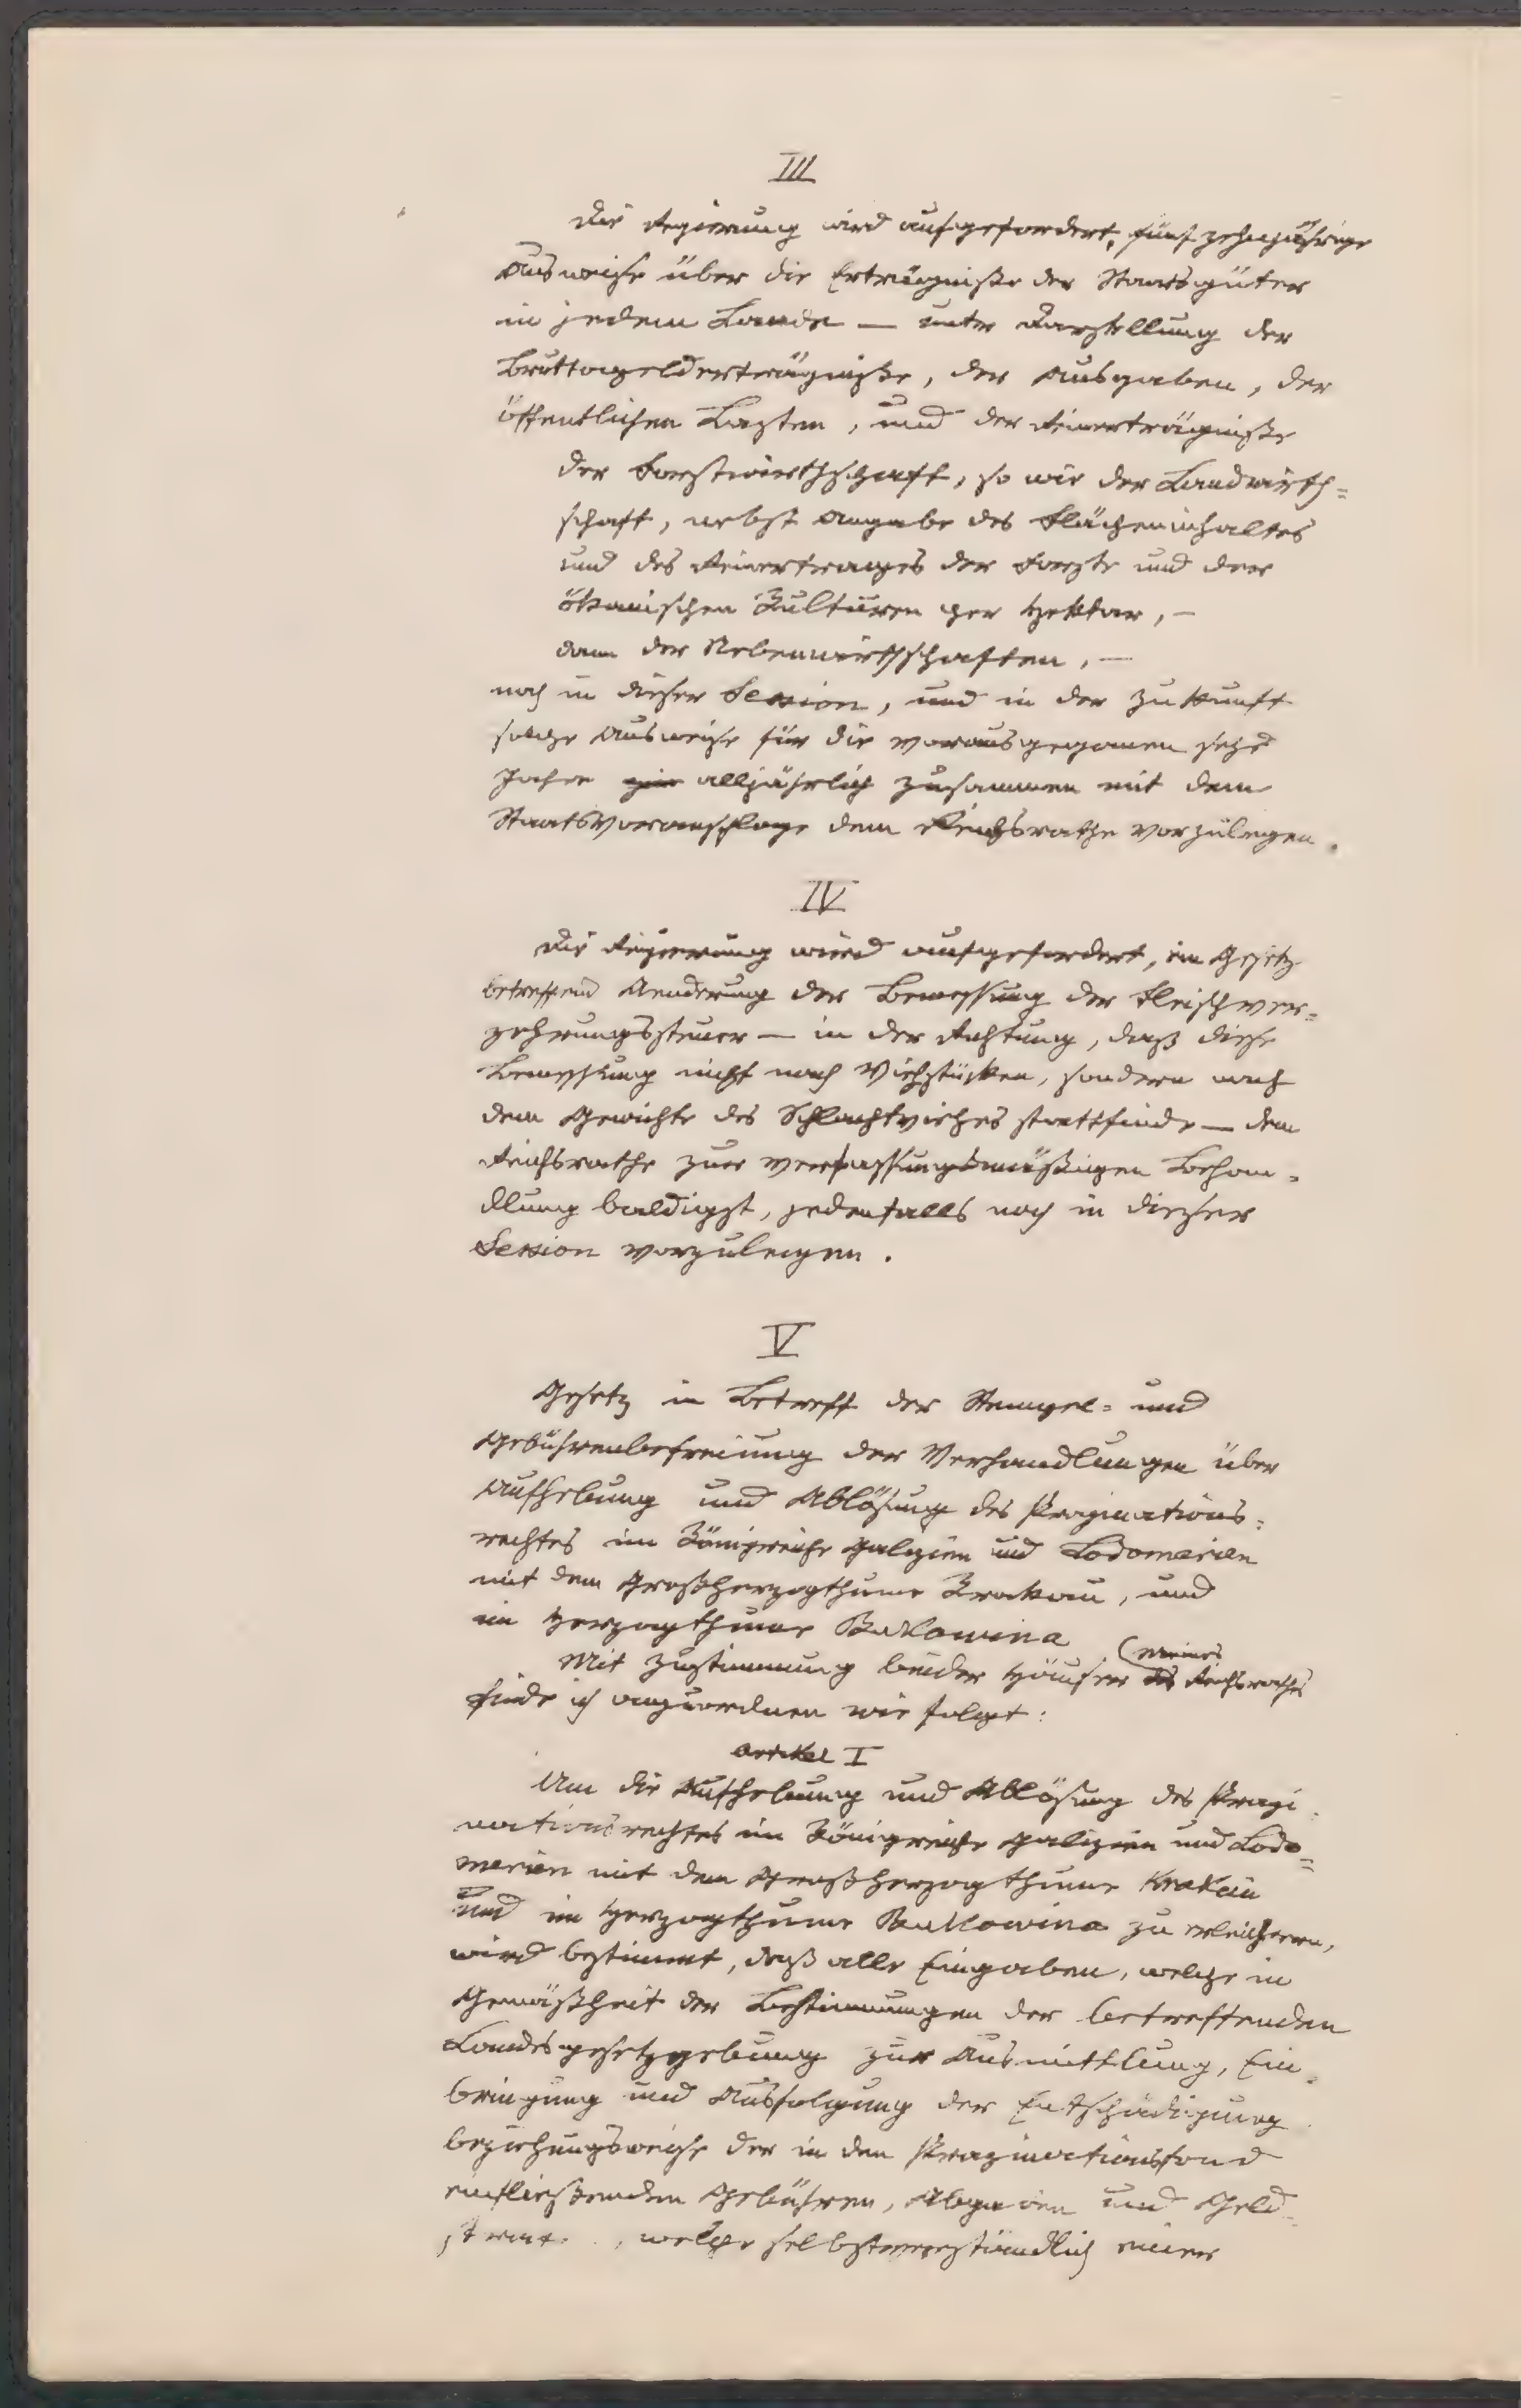 III
Die Regierung wird aufgefordert, fünfzehnjährige
Ausweise über die Erträgniße der Staatsgüter
in jedem Lande — unter Darstellung der
Bruttogelderträgniße, der Ausgaben, der
öffentlichen Lasten, und der Reinerträgniße
der Forstwirthschaft, so wie der Landwirth=
schaft, nebst Angabe des Flächeninhaltes
und des Reinertrages der Forste und der
ökonischen Kulturen per Hektar, —
dann der Nebenwirthschaften, —
noch in dieser Session, und in der Zukunft
solche Ausweise für die vorausgegangenen sechs
Jahre alljährlich zusammen mit dem
Staatsvoranschlage dem Reichsrathe vorzulegen.
IV
Die Regierung wird aufgefordert, ein Gesetz
betreffend Aenderung der Bemessung der Fleischver=
zehrungssteuer — in der Richtung, daß diese
Bemessung nicht nach Viehstücken, sondern nach
dem Gewichte des Schlachtviehes stattfinde — dem
Reichsrathe zur verfassungsmäßigen Behan=
dlung baldigst, jedenfalls noch in dieser
Session vorzulegen.
V
Gesetz in Betreff der Stempel= und
Gebührenbefreiung der Verhandlungen über
Aufhebung und Ablösung des Propinations=
rechtes im Königreiche Galizien und Lodomerien
mit dem Großherzogthume Krakau, und
im Herzogthume Bukowina
Mit Zustimmung beider Häuser des (meines Reichsrathes
finde ich anzuordnen wie folgt:
Artikel I
Um die Aufhebung und Ablösung des Propi
nationsrechtes im Königreiche Galizien und Lodo=
merien mit dem Großherzogthume Krakau
und im Herzogthume Bukowina zu erleichtern,
wird bestimmt, daß alle Eingaben, welche in
Gemäßheit der Bestimmungen der betreffenden
Landesgesetzgebung zur Ausmittlung, Ein=
bringung und Ausfolgung der Entschädigung
beziehungsweise der in den Propinationsfond
einfließenden Gebühren, Abgaben und Geld
, welche selbstverständlich einer